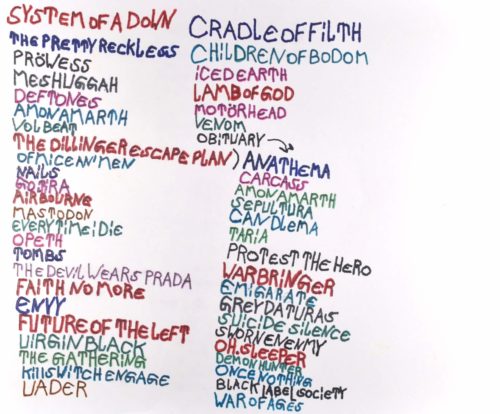 SYSTEM OF A DOWN
THE PRETTY RECKLESS
PRÖWESS
MESHUGGAH
DEFTONES
AMON AMARTH
VOLBEAT
THE DILLINGER ESCAPE PLAN)
OF MICE AN' MEN
NAILS
GOJIRA
AIRBOURNE
MASTODON
EVERYTIME I DIE
OPETH
TOMBS
THE DEVIL WEARS PRADA
FAITH NO MORE
ENVY
FUTURE OF THE LEFT
VIRGIN BLACK
THE GATHERING
KILLSWITCH ENGAGE
VADER
CRADLE OF FILTH
CHILDREN OF BODOM
ICED EARTH
LAMB OF GOD
MOTÖRHEAD
VENOM
OBITUARY
ANATHEMA
CARCASS
AMON AMARTH
SEPULTURA
CANDLEMA
TARJA
PROTEST THE HERO
WARBRINGER
EMIGRATE
GREY DATURAS
SUICIDE SILENCE
SWORN ENEMY
OH, SLEEPER
DEMON HUNTER
ONCE NOTHING
BLACK LABEL SOCIETY
WAR OF AGES